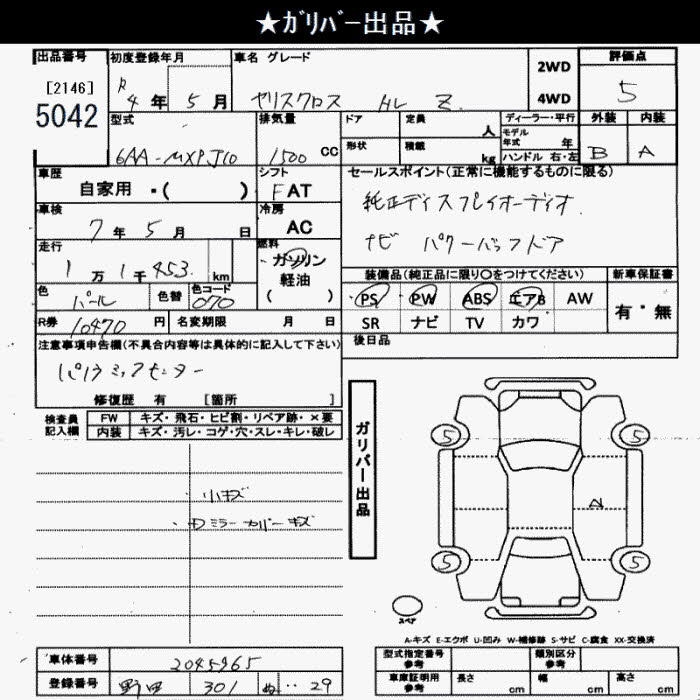 ★ガリバー出品★
出品番号 初度登録年月 車名 グレード 2WD 4WD 評価点
[2146] R 4年 5月 ヤリスクロス Z 5
5042
型式 排気量 ドア 定員 人 ディーラー・平行 外装 内装
形状 積載 kg モデル年式 年 ハンドル 右・左 B A
6AA-MXPJ10 1500 CC
車歴 シフト セールスポイント(正常に機能するものに限る)
自家用・( ) FAT
純正ディスプレイオーディオ
車検 冷房
7年 5月 日 AC
ナビ パワーバックドア
走行 燃料
1万 1千 453 km ガソリン 軽油 ( )
装備品(純正品に限り○をつけてください) 新車保証書
色 パール 色替 色コード 070
PS PW ABS エアB AW 有・無
R券 10470 円 名変期限 月 日
SR ナビ TV カワ
注意事項申告欄(不具合内容等は具体的に記入して下さい) 後日品
修復歴 有 [箇所 ]
検査員記入欄 FW キズ・飛石・ヒビ割・リペア跡・×要
内装 キズ・汚レ・コゲ・穴・スレ・キレ・破レ
ガリバー出品
5 5
・小キズ A
ミラーカバーキズ
5 5
スペア
A-キズ E-エクボ U-凹み W-補修跡 S-サビ C-腐食 XX-交換済
車体番号 2045965
型式指定番号 参考 類別区分 参考
登録番号 野田 301 ぬ ・・29
車庫証明用 参考 長さ cm 幅 cm 高さ cm